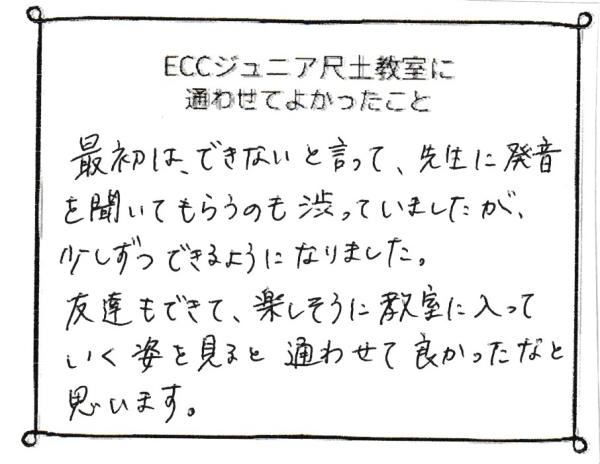 ECCジュニア尺土教室に
通わせてよかったこと
最初は、できないと言って、先生に発音
を聞いてもらうのも渋っていましたが、
少しずつできるようになりました。
友達もできて、楽しそうに教室に入って
いく姿を見ると通わせて良かったなと
思います。